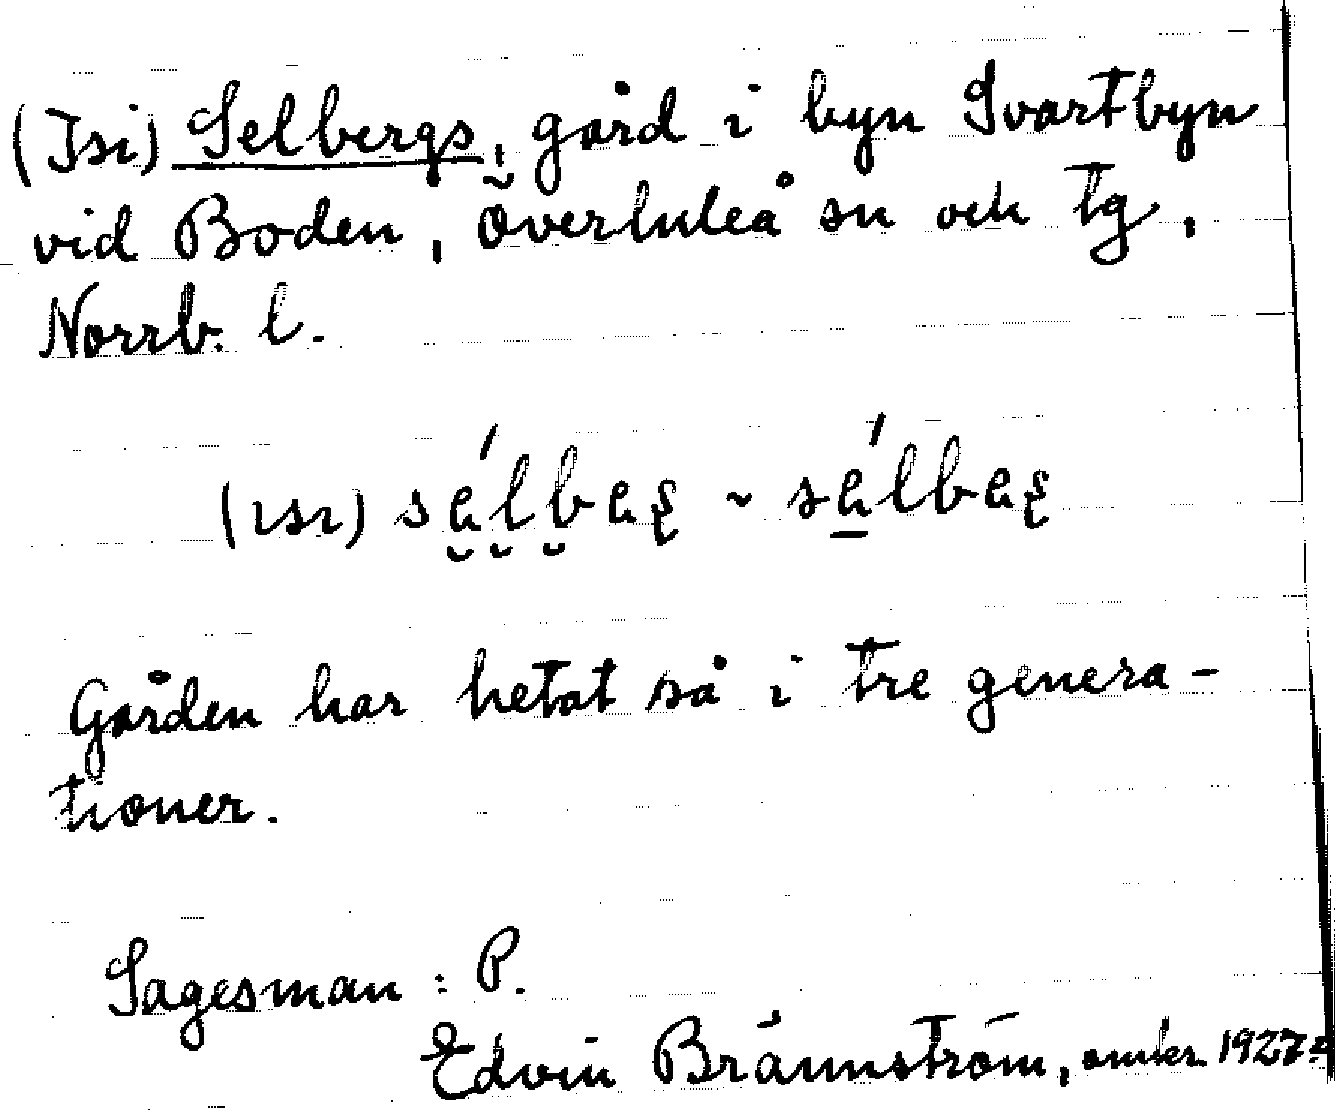 (Isi) Selbergs, gård i byn Svartbyn
vid Boden, Överluleå sn och tg,
Norrb. l.
(ısı) sálbaʂ ~ sálbaʂ
Gården har hetat så i tre genera-
tioner.
Sagesman: P.
Edvin Brännström, 1927